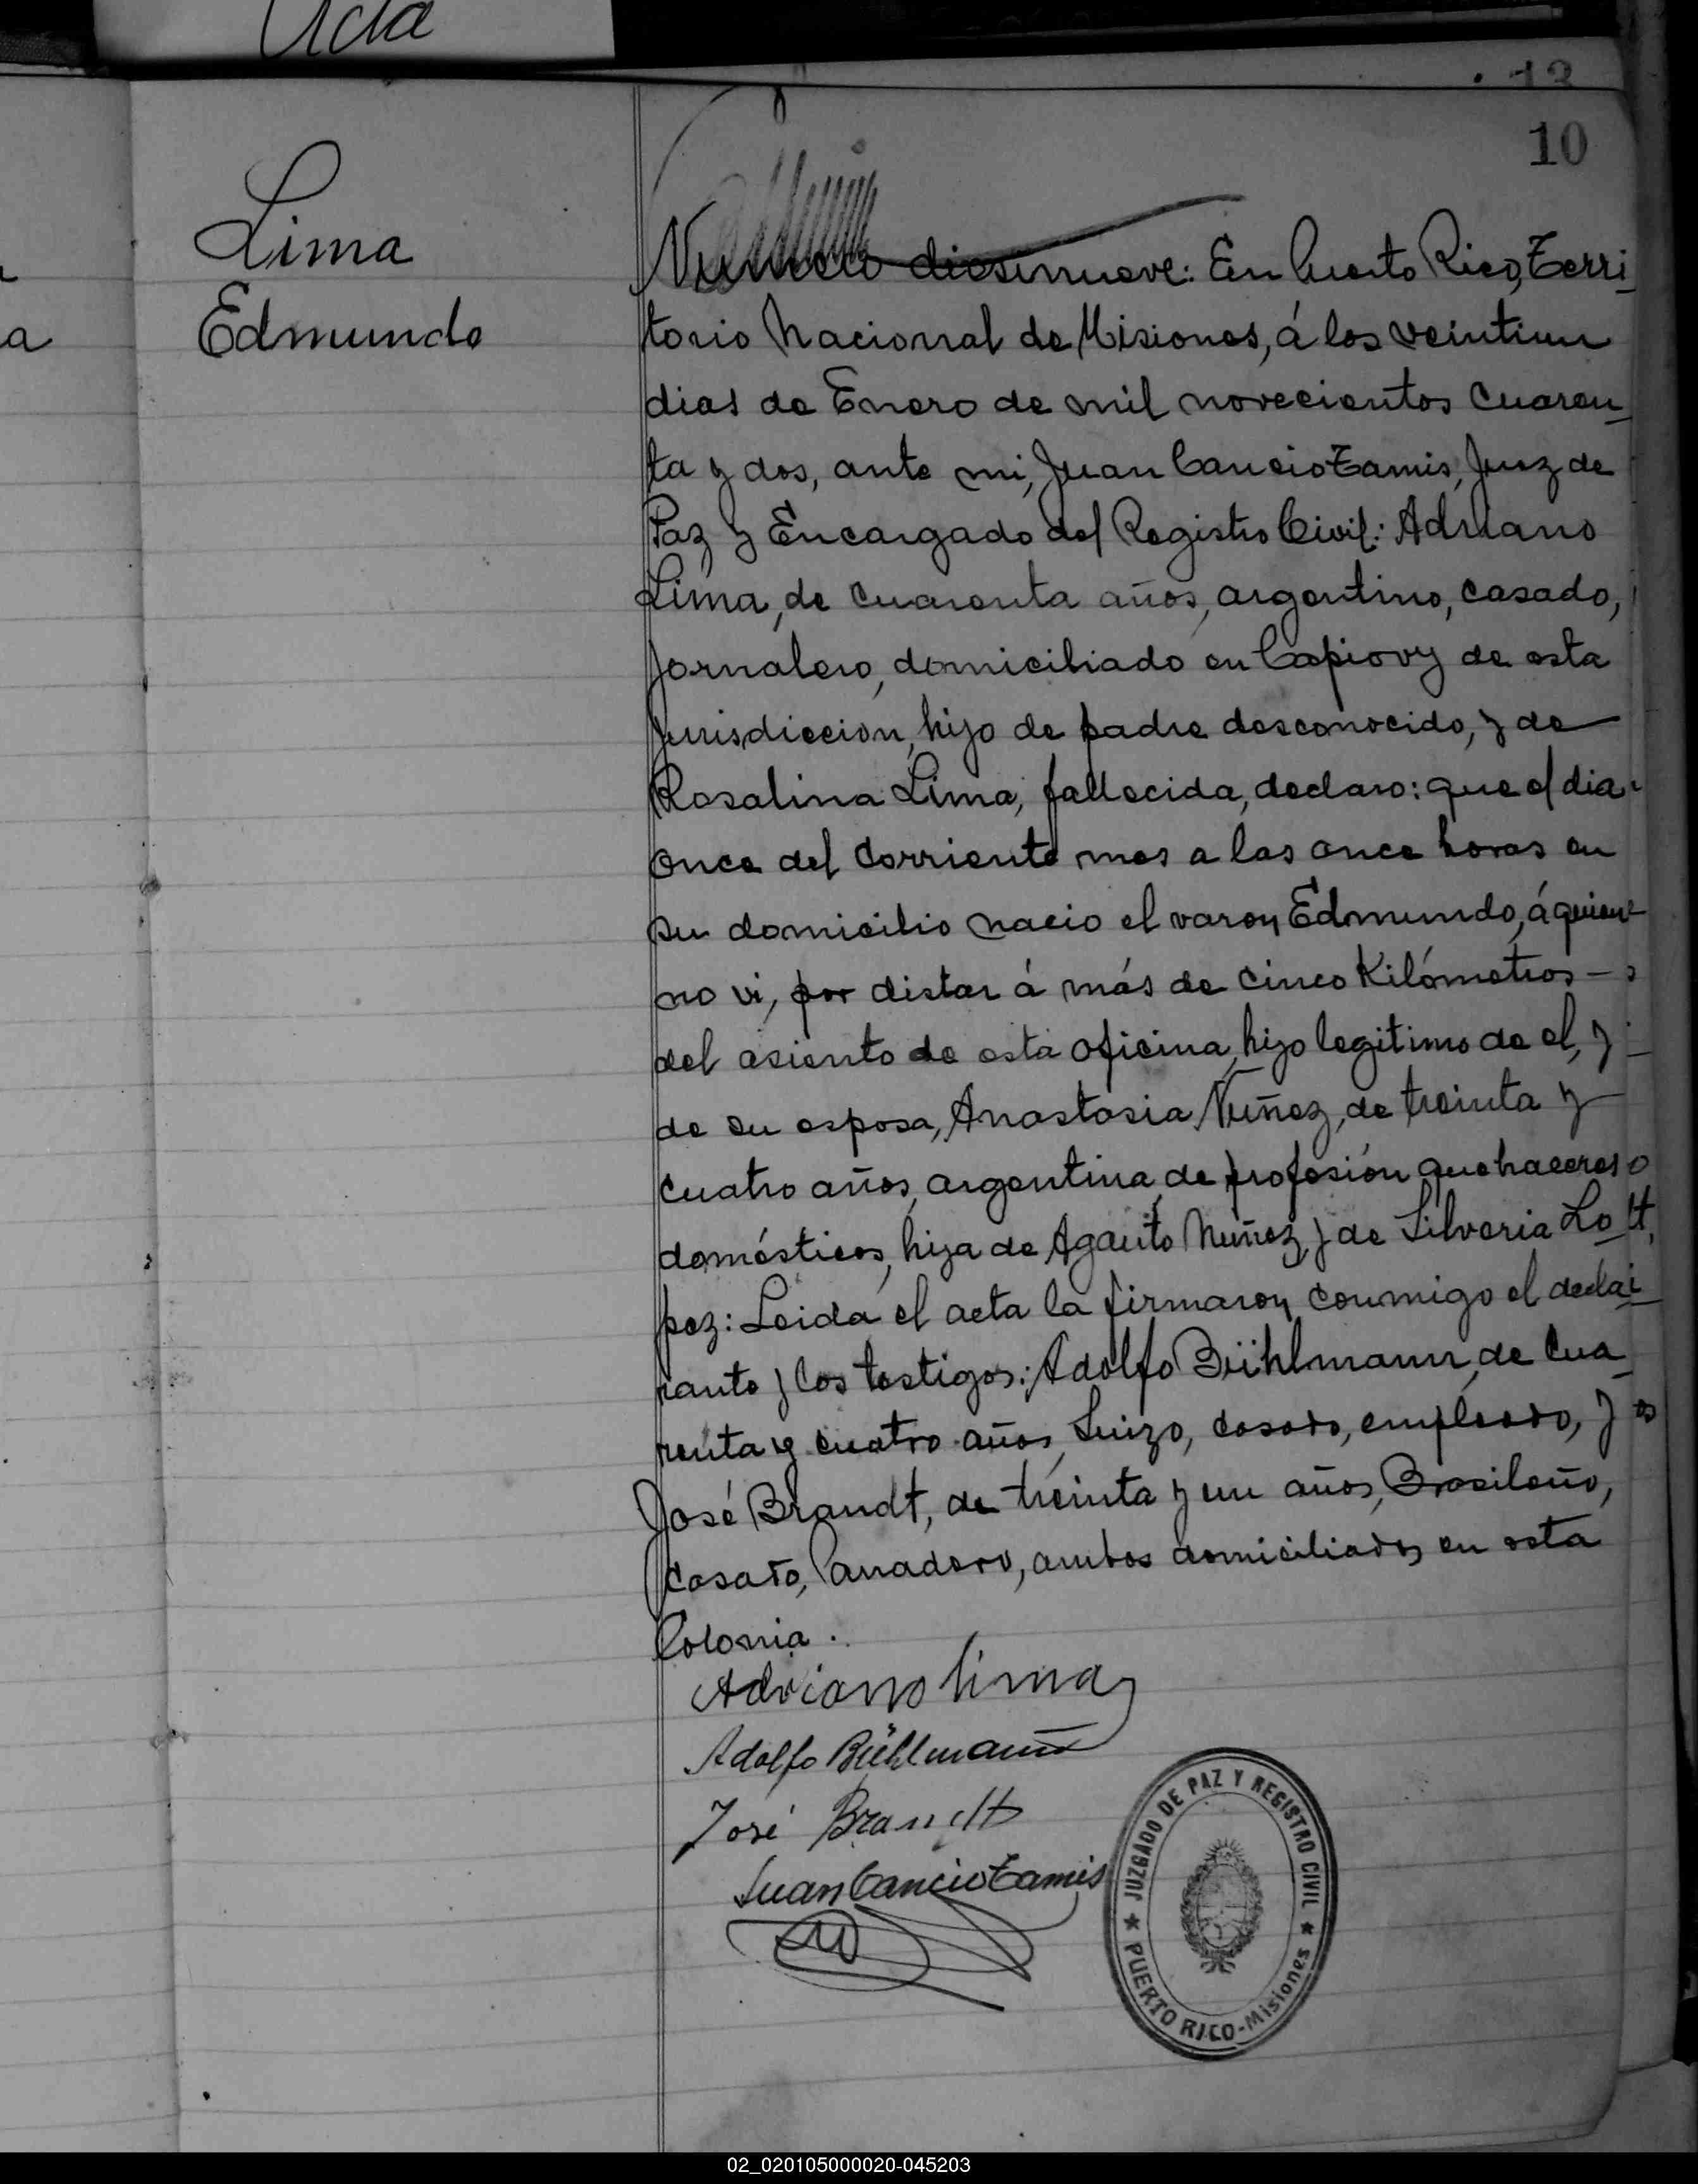 Acta
13
10
Lima
Edmundo
a
Numero diesinueve: En Puerto Rico, Terri_
torio Nacional de Misiones, á los veintiun
dias de Enero de mil novecientos cuaren_
ta y dos, ante mi, Juan Cancio Tamis, Juez de
Paz y Encargado del Registro Civil: Adriano
Lima, de cuarenta años, argentino, casado,
Jornalero, domiciliado en Capiovy de esta
Jurisdiccion, hijo de padre desconocido, y de
Rosalina Lima, fallecida, declaro: que el dia
once del corriente mes a las once horas en
su domicilio nacio el varon Edmundo, á quien
no vi, por distar á más de cinco Kilómetros
del asiento de esta oficina, hijo legitimo de el, y
de su esposa, Anastasia Nuñez, de treinta y
cuatro años, argentina, de profesión quehaceres
domésticos, hija de Agauto Nuñez y de Silveria Lo
pez: Leida el acta la firmaron conmigo el decla
rante y los testigos: Adolfo Bühlmann, de cua_
renta y cuatro años, Suizo, casado, empleado, y
José Brandt, de treinta y un años, Brasileño,
casado, Panadero, ambos domiciliados en esta
Colonia.
Adriano Lima
Adolfo Bühlmann
José Brandt
Juan Cancio Tamis
JUZGADO DE PAZ Y REGISTRO CIVIL
★ PUERTO RICO-Misiones ★
02_020105000020-045203